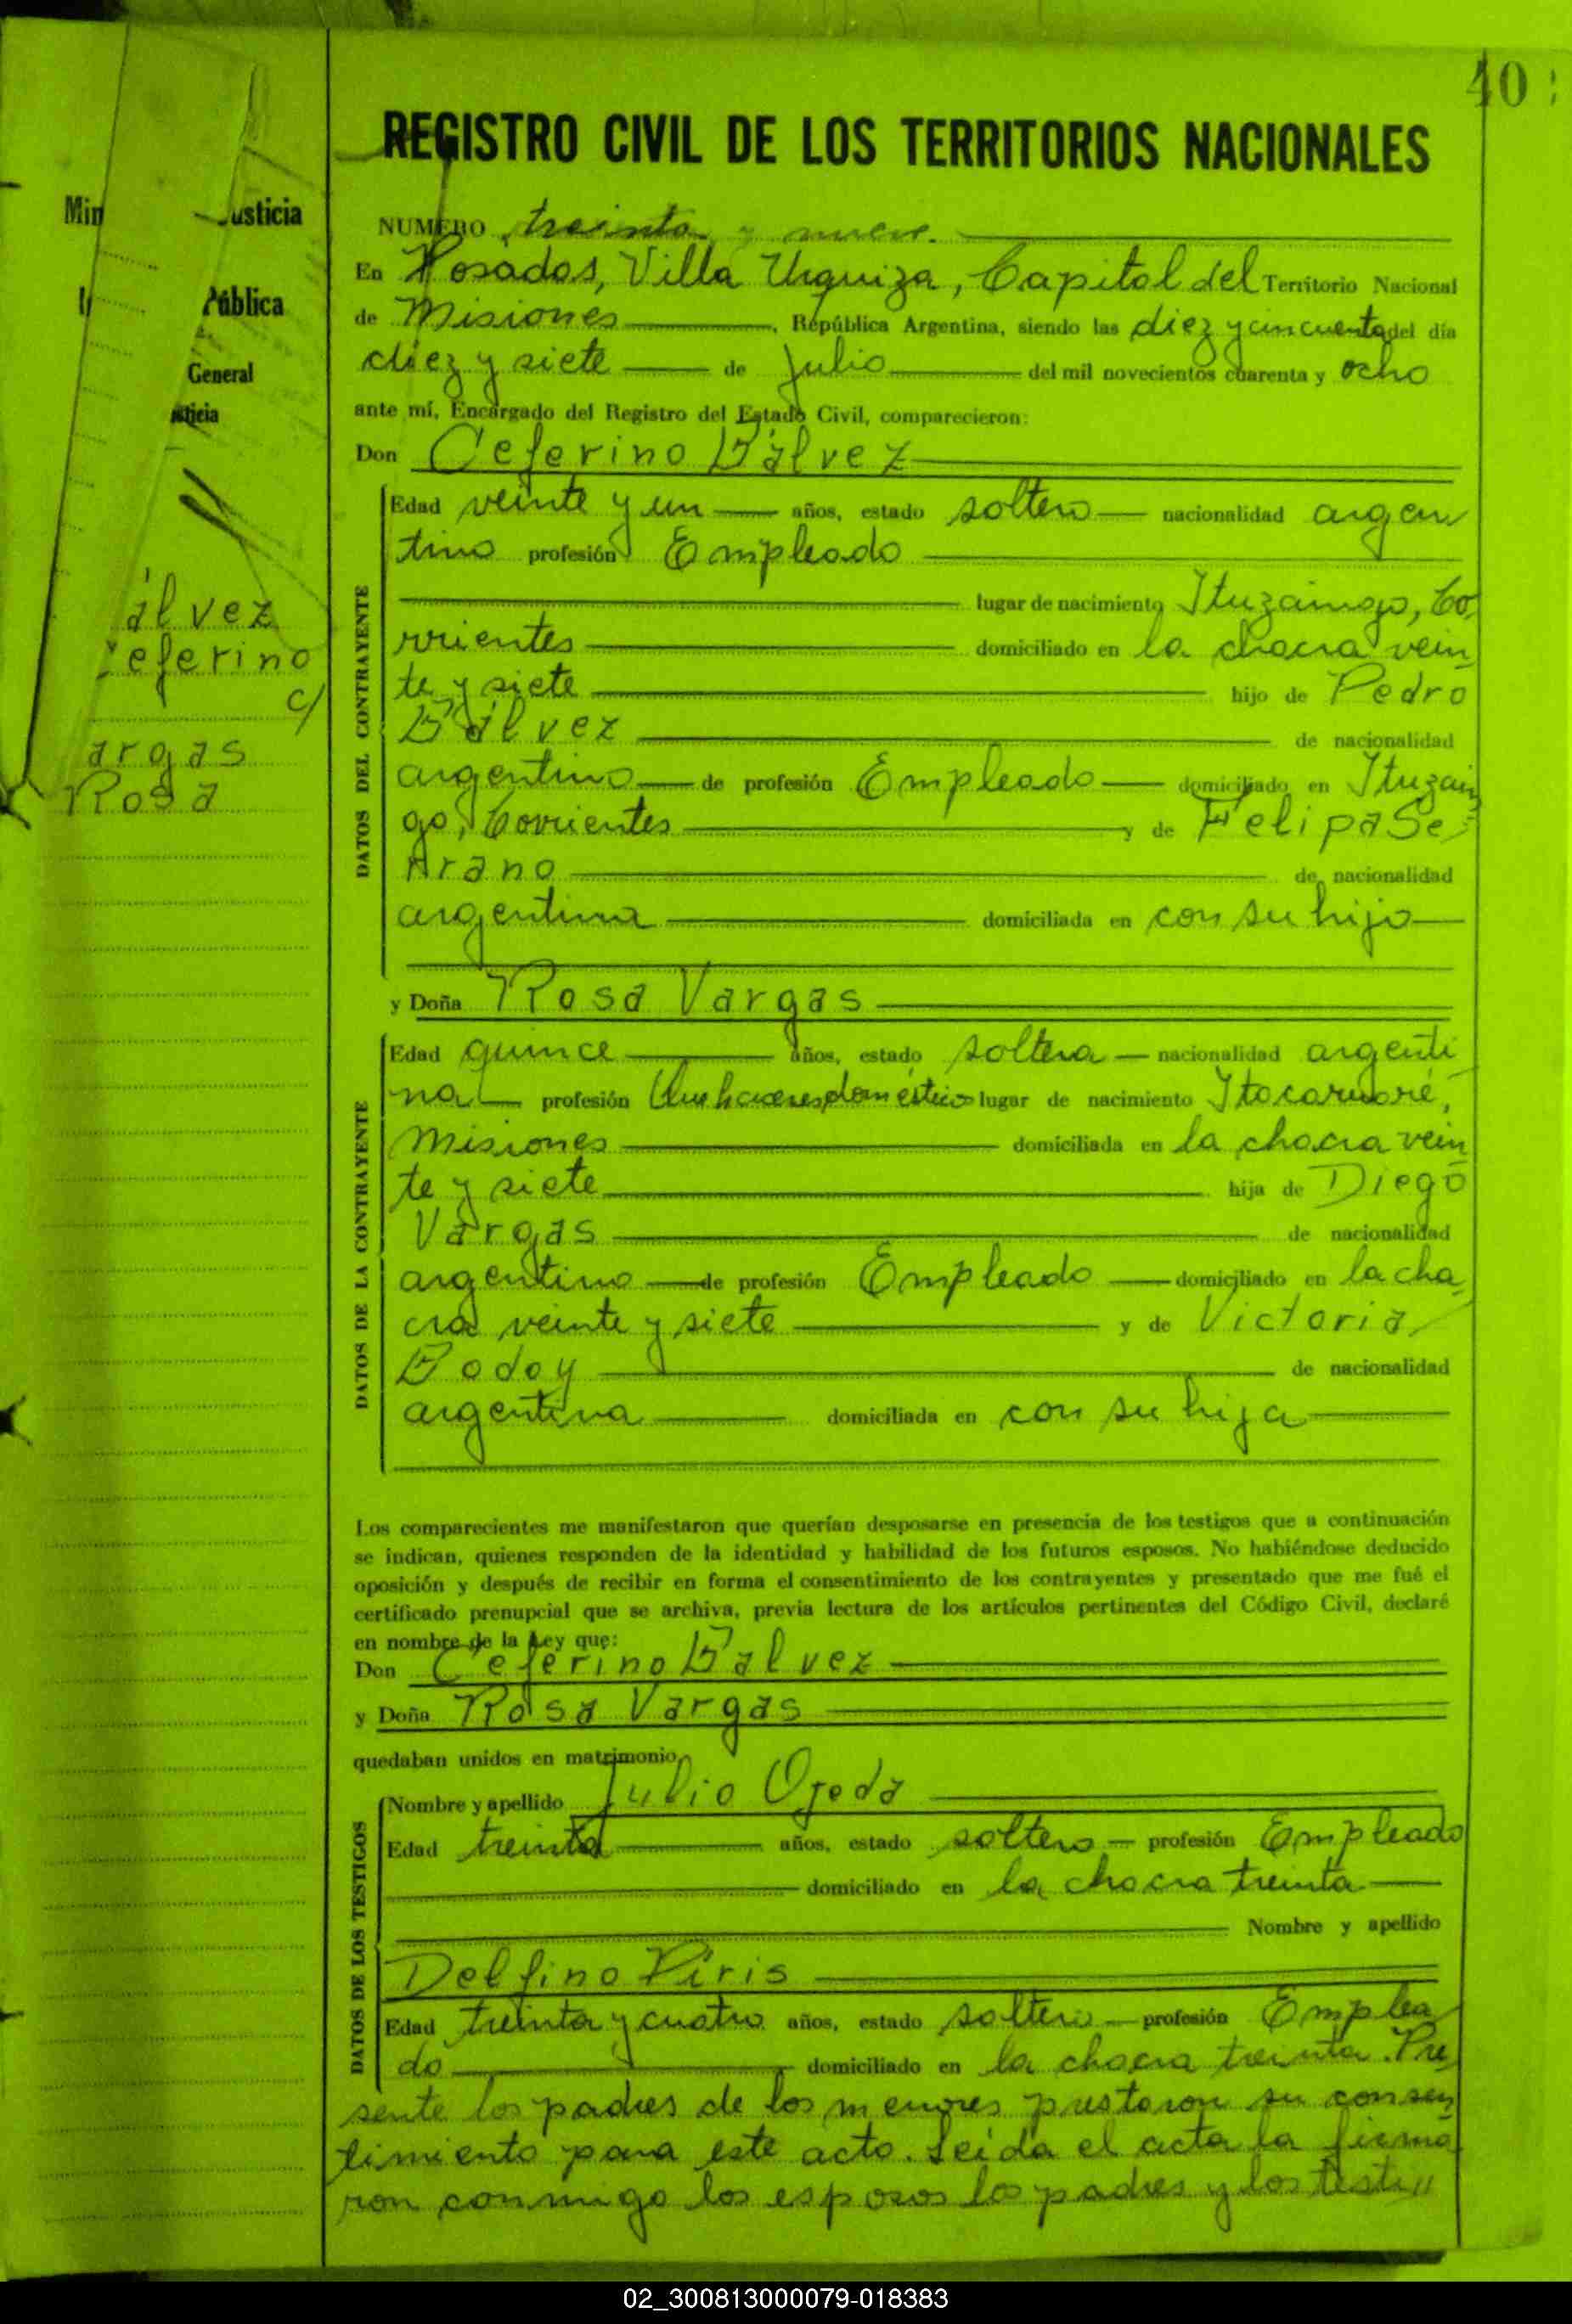 40
REGISTRO CIVIL DE LOS TERRITORIOS NACIONALES
NUMERO treinta y nueve.
En Posadas, Villa Urquiza, Capital del Territorio Nacional
de Misiones, República Argentina, siendo las diez y cincuenta del día
diez y siete de julio del mil novecientos cuarenta y ocho
ante mí, Encargado del Registro del Estado Civil, comparecieron:
Don Ceferino Gálvez
DATOS DEL CONTRAYENTE
Edad veinte y un años, estado soltero nacionalidad argen
tino profesión Empleado
lugar de nacimiento Ituzaingo, Co,
rrientes domiciliado en la chacra vein,
te y siete hijo de Pedro
Gálvez de nacionalidad
argentino de profesión Empleado domiciliado en Ituzain
go, Corrientes y de Felipa Se
de nacionalidad
argentina domiciliada en con su hijo
y Doña Rosa Vargas
DATOS DE LA CONTRAYENTE
Edad quince años, estado soltera nacionalidad argenti
na profesión lugar de nacimiento Itacaruaré,
Misiones domiciliada en la chacra vein
te y siete hija de Diego
Vargas de nacionalidad
argentino de profesión Empleado domiciliado en la cha,
cra veinte y siete y de Victoria
Godoy de nacionalidad
argentina domiciliada en con su hija
Los comparecientes me manifestaron que querían desposarse en presencia de los testigos que a continuación
se indican, quienes responden de la identidad y habilidad de los futuros esposos. No habiéndose deducido
oposición y después de recibir en forma el consentimiento de los contrayentes y presentado que me fué el
certificado prenupcial que se archiva, previa lectura de los artículos pertinentes del Código Civil, declaré
en nombre de la Ley que:
Don Ceferino Gálvez
y Doña Rosa Vargas
quedaban unidos en matrimonio
DATOS DE LOS TESTIGOS
Nombre y apellido Julio Ojeda
Edad treinta años, estado soltero profesión Empleado
domiciliado en la chacra treinta
Nombre y apellido
Delfino Piris
Edad treinta y cuatro años, estado soltero profesión Emplea
do domiciliado en la chacra treinta. Pre
sente los padres de los menores prestaron su consen,
timiento para este acto. Leída el acta la firma
ron conmigo los esposos los padres y los testi,,
Min usticia
Pública
General
sticia
álvez
eferino
c/
argas
Rosa
02_300813000079-018383